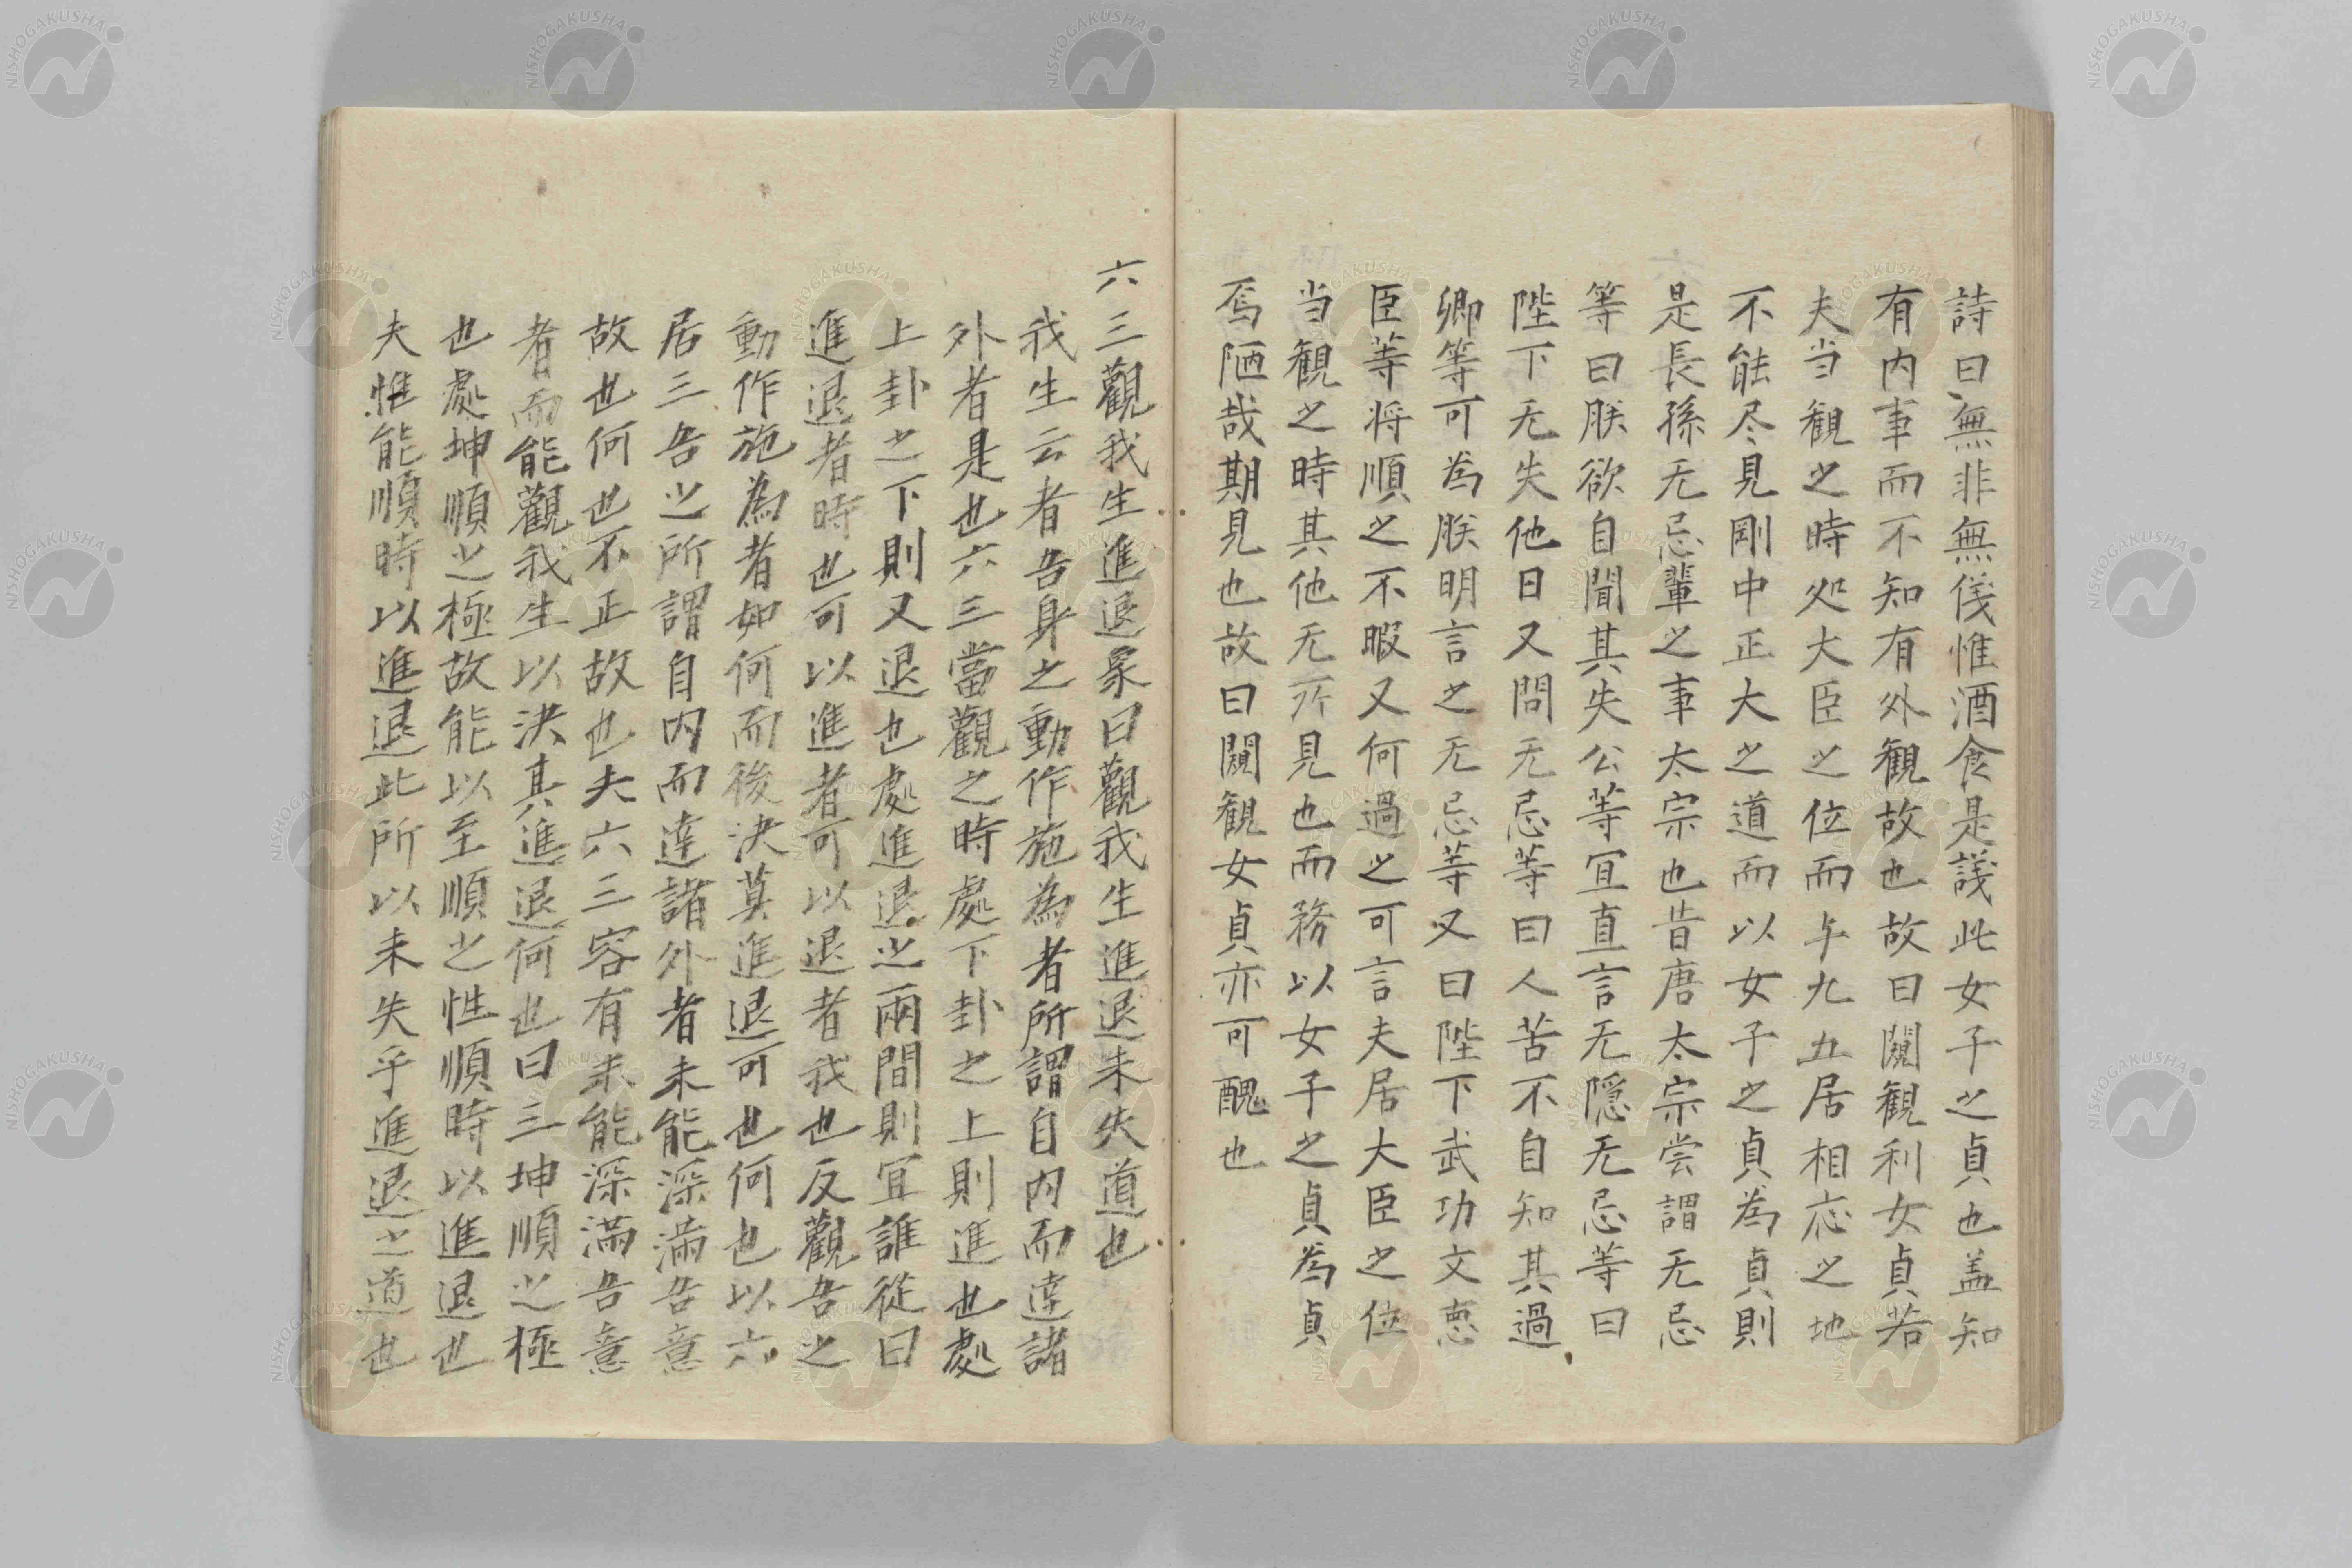 詩曰無非無儀惟酒食是議此女子之貞也盖知
有内事而不知有外観故也故曰闚観利女貞若
夫当観之時処大臣之位而与九五居相応之地
不能尽見剛中正大之道而以女子之貞為貞則
是長孫无忌輩之事太宗也昔唐太宗尝謂无忌
等曰朕欲自聞其失公等宜直言无隠无忌等曰
陛下无失他日又問无忌等曰人苦不自知其過
卿等可為朕明言之无忌等又曰陛下武功文悳
臣等将順之不暇又何過之可言夫居大臣之位
当観之時其他无所見也而務以女子之貞為貞
焉陋哉期見也故曰闚観女貞亦可醜也
六三觀我生進退象曰觀我生進退未失道也
我生云者吾身之動作施為者所謂自内而達諸
外者是也六三當觀之時處下卦之上則進也處
上卦之下則又退也處進退之兩間則宜誰從曰
進退者時也可以進者可以退者我也反觀吾之
動作施為者如何而後決莫進退可也何也以六
居三吾之所謂自内而達諸外者未能深満吾意
故也何也不正故也夫六三容有未能深満吾意
者而能觀我生以決其進退何也曰三坤順之極
也處坤順之極故能以至順之性順時以進退也
夫惟能順時以進退此所以未失乎進退之道也
NISHOGAKUSHA